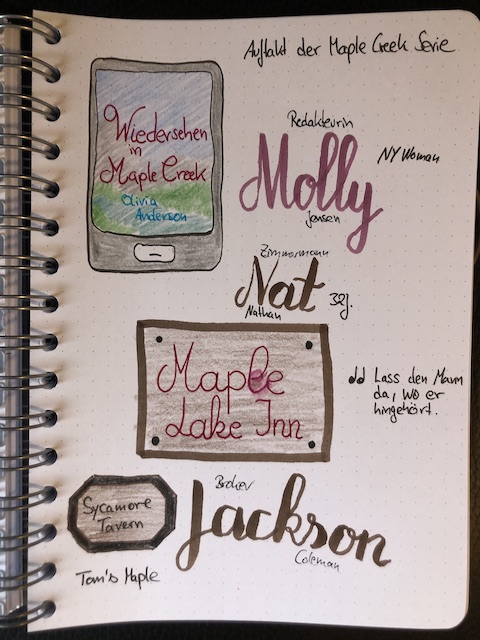 Auftakt der Maple Creek Serie
Wiedersehen
in
Maple Creek
Olivia
Anderson
Redakteurin
Molly
Jensen
NY Woman
Zimmermann
Nat
Nathan
32j.
Maple
Lake Inn
dd Lass den Mann
da, wo er
hingehört.
Sycamore
Tavern
Broker
Jackson
Coleman
Tom's Maple